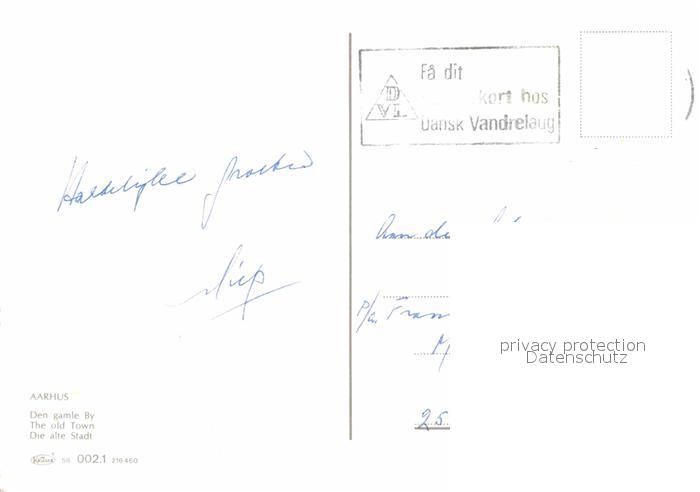 Få dit
kort hos
Dansk Vandrelaug
D
VL
Hartelijke groeten
Miep
Aan de
P/a. Fran
25
privacy protection
Datenschutz
AARHUS
Den gamle By
The old Town
Die alte Stadt
58 002.1 216460